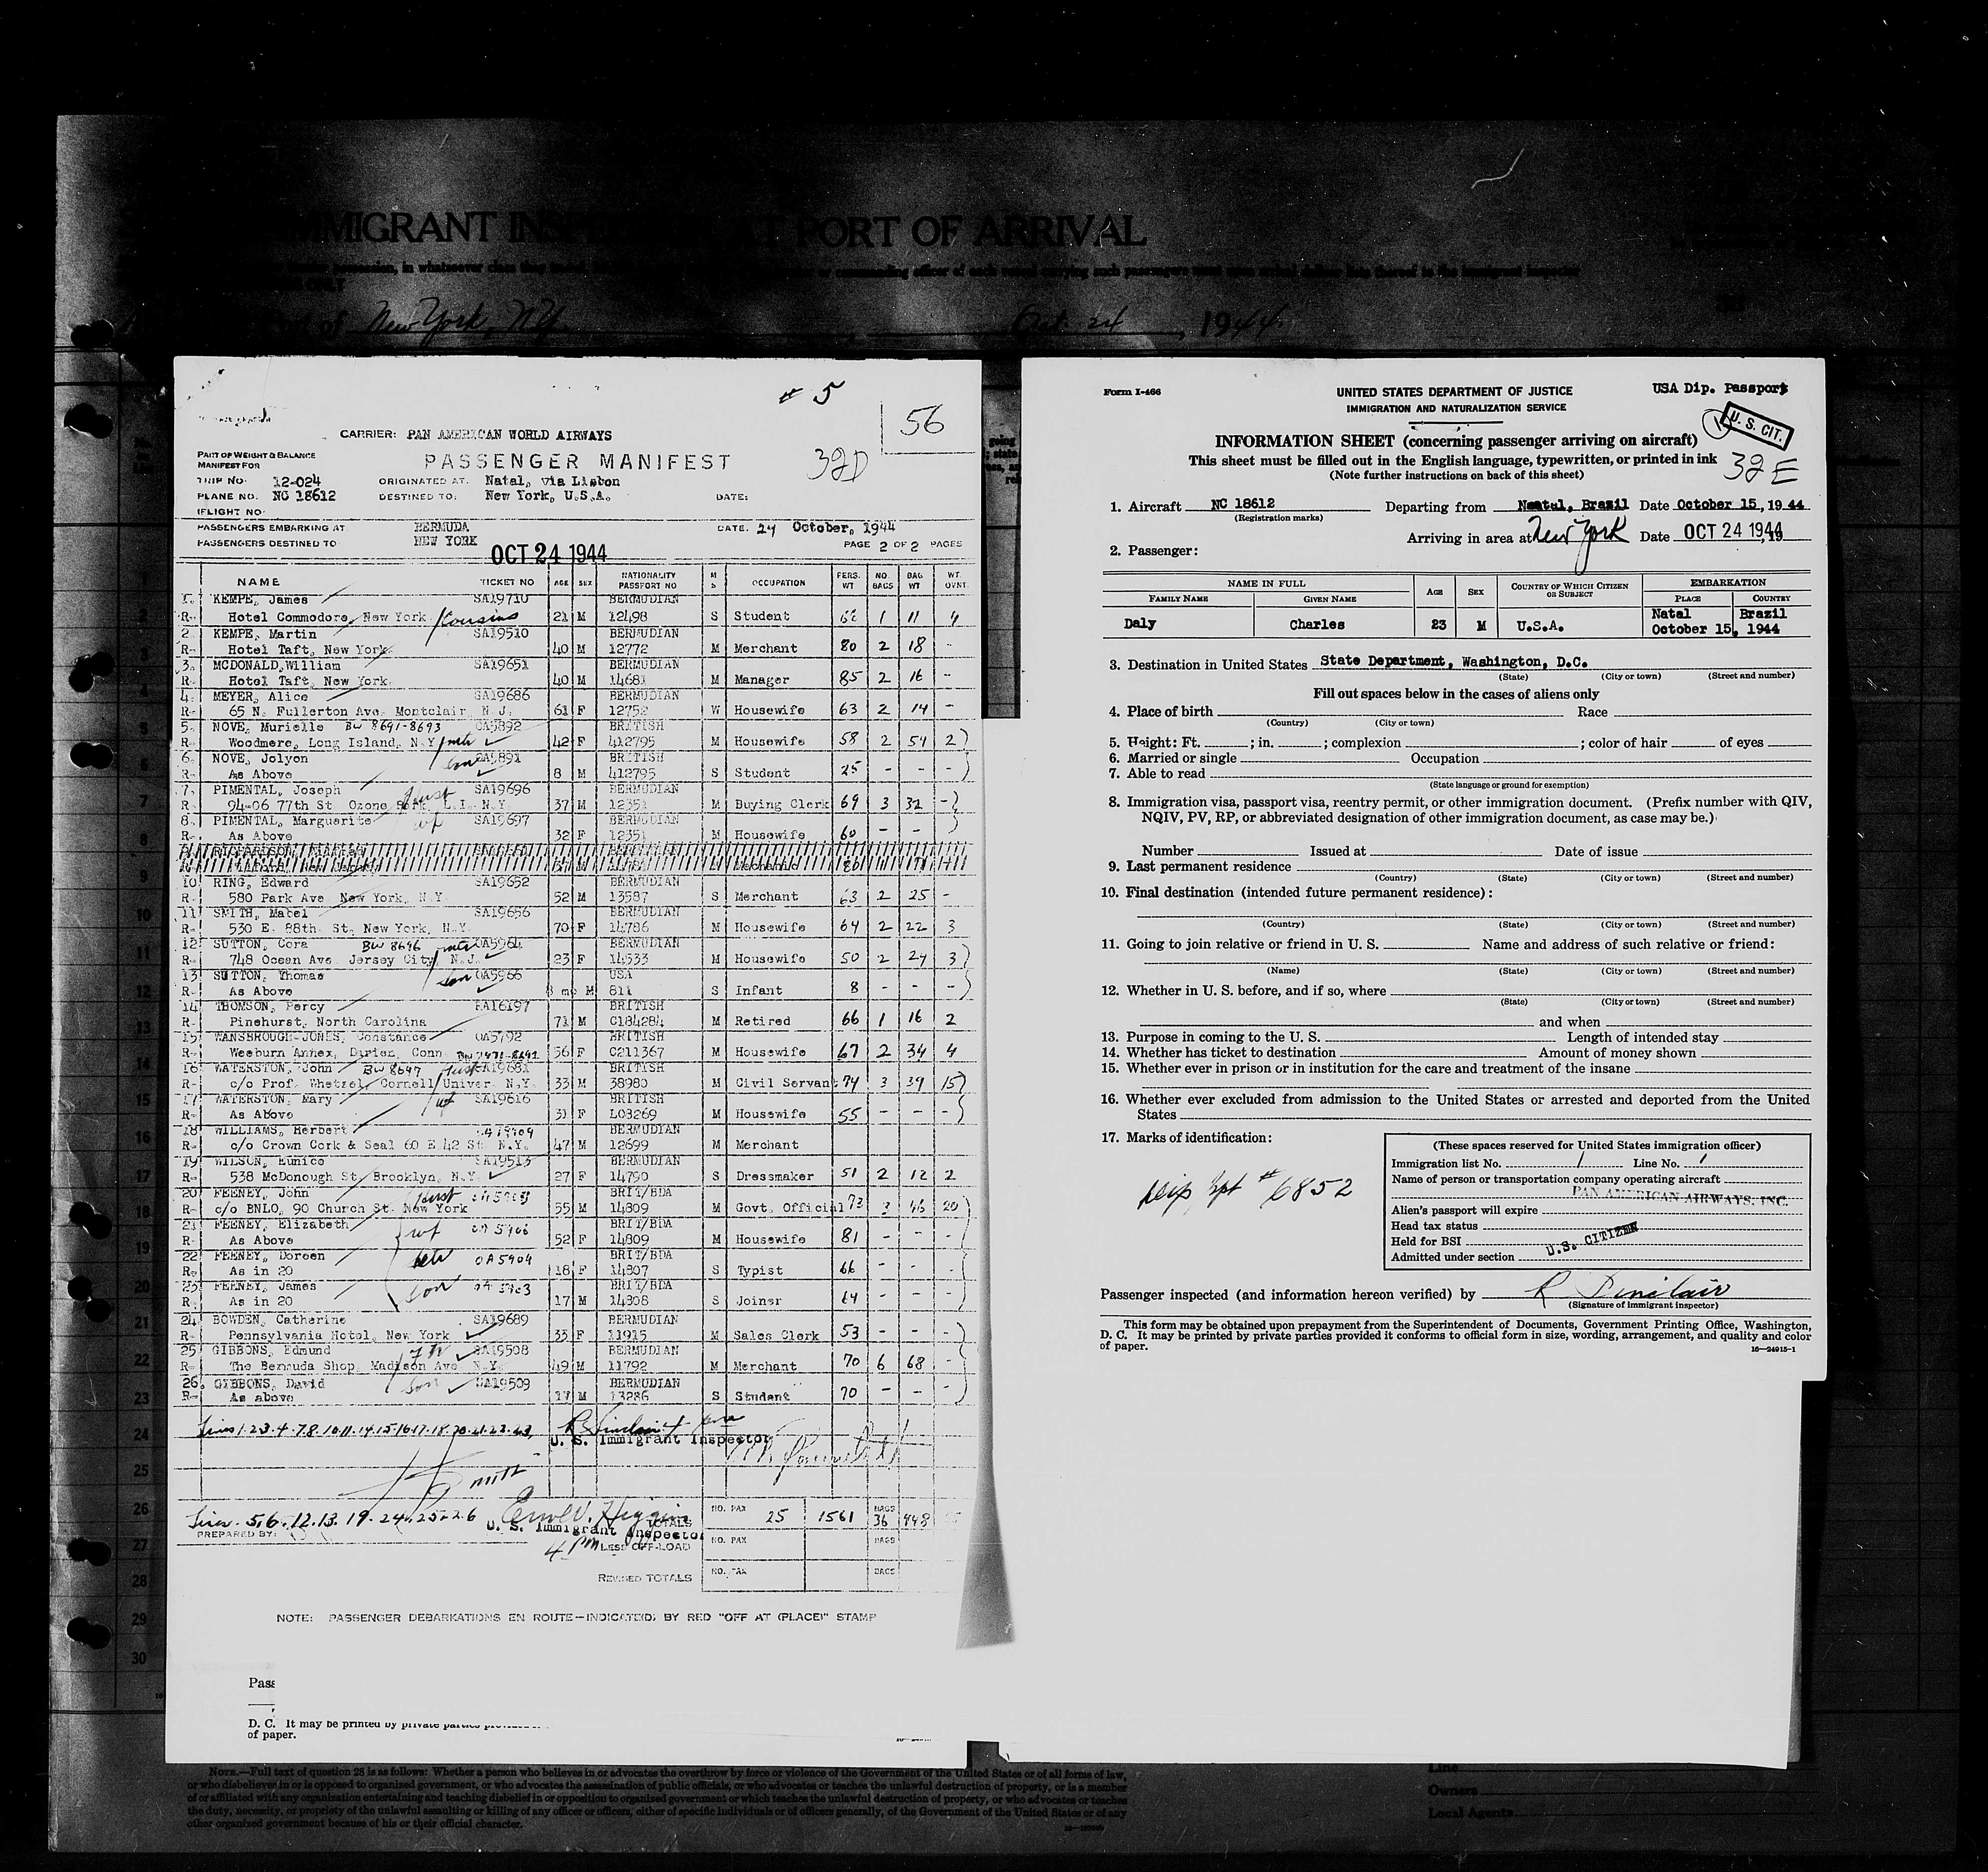 IMMIGRANT INSPECTOR AT PORT OF ARRIVAL
New York, N.Y. Oct. 24, 1944
# 5
56
CARRIER: PAN AMERICAN WORLD AIRWAYS
PASSENGER MANIFEST
32D
PART OF WEIGHT & BALANCE
MANIFEST FOR
TRIP NO. 12-024 ORIGINATED AT. Natal, via Lisbon
PLANE NO. NC 18612 DESTINED TO. New York, U.S.A. DATE:
FLIGHT NO.
PASSENGERS EMBARKING AT BERMUDA DATE. 24 October, 1944
PASSENGERS DESTINED TO NEW YORK PAGE 2 OF 2 PAGES
OCT 24 1944
NAME TICKET NO AGE SEX NATIONALITY PASSPORT NO M S OCCUPATION PERS. WT NO. BAGS BAG WT WT. OVNT.
1. KEMPE, James SA19710 BERMUDIAN
R- Hotel Commodore, New York /Cousins 21 M 12498 S Student 1 11 4
2. KEMPE, Martin SA19510 BERMUDIAN
R- Hotel Taft, New York 40 M 12772 M Merchant 80 2 18 -
3. MCDONALD, William SA19651 BERMUDIAN
R- Hotel Taft, New York 40 M 14681 M Manager 85 2 16 -
4. MEYER, Alice SA19686 BERMUDIAN
R- 65 N. Fullerton Ave. Montclair, N.J. 61 F 12752 W Housewife 63 2 14 -
5. NOVE, Murielle BW 8691-8693 OA5892 BRITISH
R- Woodmere, Long Island, N.Y. 42 F 412795 M Housewife 58 2 54 2
6. NOVE, Jolyon OA5891 BRITISH
R- As Above 8 M 412795 S Student 25 - - -
7. PIMENTAL, Joseph SA19696 BERMUDIAN
R- 94-06 77th St. Ozone Park, L.I. N.Y. 37 M 12351 M Buying Clerk 69 3 32 -
8. PIMENTAL, Marguerite wf SA19697 BERMUDIAN
R- As Above 32 F 12351 M Housewife 60 - -
10 RING, Edward SA19652 BERMUDIAN
R- 580 Park Ave New York, N.Y. 52 M 13587 S Merchant 63 2 25 -
11 SMITH, Mabel SA19656 BERMUDIAN
R- 530 E. 88th. St. New York, N.Y. 70 F 14786 M Housewife 64 2 22 3
12 SUTTON, Cora BW 8696 OA5964 BERMUDIAN
R- 748 Ocean Ave. Jersey City, N.J. 23 F 14533 M Housewife 50 2 27 3
13 SUTTON, Thomas son OA5966 USA
R- As Above 8 mo M 811 S Infant 8 - - -
14 THOMSON, Percy RA16197 BRITISH
R- Pinehurst, North Carolina 71 M C184284 M Retired 66 1 16 2
15 WANSBROUGH-JONES, Constance OA5792 BRITISH
R- Weeburn Annex, Darien, Conn. 56 F C211367 M Housewife 67 2 34 4
16 WATERSTON, John BW 8647 SA19681 BRITISH
R- c/o Prof. Whetzel, Cornell Univer. N.Y. 33 M 38980 M Civil Servant 74 3 39 15
17 WATERSTON, Mary wf SA19616 BRITISH
R- As Above 31 F L08269 M Housewife 55 - - -
18 WILLIAMS, Herbert BERMUDIAN
R- c/o Crown Cork & Seal 60 E 42 St. N.Y. 47 M 12699 M Merchant
19 WILSON, Eunice SA19513 BERMUDIAN
R- 538 McDonough St. Brooklyn, N.Y. 27 F 14790 S Dressmaker 51 2 12 2
20 FEENEY, John BRIT/BDA
R- c/o BNLO, 90 Church St. New York 55 M 14809 M Govt. Official 73 3 46 20
21 FEENEY, Elizabeth wf OA 5906 BRIT/BDA
R- As Above 52 F 14809 M Housewife 81 - - -
22 FEENEY, Doreen OA5904 BRIT/BDA
R- As in 20 18 F 14807 S Typist 66 - - -
23 FEENEY, James son BRIT/BDA
R- As in 20 17 M 14808 S Joiner 64 - - -
24 BOWDEN, Catherine SA19689 BERMUDIAN
R- Pennsylvania Hotel, New York 33 F 11915 M Sales Clerk 53 - - -
25 GIBBONS, Edmund SA19508 BERMUDIAN
R- The Bermuda Shop, Madison Ave N.Y. 49 M 11792 M Merchant 70 6 68 -
26. GIBBONS, David son SA19509 BERMUDIAN
R- As above 17 M 13286 S Student 70 - - -
Lines 1-2-3-4-7-8-10-11-14-15-16-17-18-20-21-22-23, R Sinclair
U. S. Immigrant Inspector
Lines. 5.6.12.13.19-24.25-26
U. S. Immigrant Inspector
4 PM
PREPARED BY:
TOTALS NO. PAX 25 1561 BAGS 36 448
LESS OFF-LOAD NO. PAX BAGS
REVISED TOTALS NO. PAX BAGS
NOTE: PASSENGER DEBARKATIONS EN ROUTE—INDICATED BY RED "OFF AT (PLACE)" STAMP
Pass
D. C. It may be printed by private parties
of paper.
Form I-466
UNITED STATES DEPARTMENT OF JUSTICE
IMMIGRATION AND NATURALIZATION SERVICE
USA Dip. Passport
U. S. CIT.
INFORMATION SHEET (concerning passenger arriving on aircraft)
This sheet must be filled out in the English language, typewritten, or printed in ink
(Note further instructions on back of this sheet)
32E
1. Aircraft NC 18612 Departing from Natal, Brazil Date October 15, 1944
(Registration marks)
Arriving in area at New York Date OCT 24 1944
2. Passenger:
NAME IN FULL AGE SEX COUNTRY OF WHICH CITIZEN OR SUBJECT EMBARKATION
FAMILY NAME GIVEN NAME PLACE COUNTRY
Daly Charles 23 M U.S.A. Natal Brazil
October 15, 1944
3. Destination in United States State Department, Washington, D.C.
(State) (City or town) (Street and number)
Fill out spaces below in the cases of aliens only
4. Place of birth Race
(Country) (City or town)
5. Height: Ft. ; in. ; complexion ; color of hair of eyes
6. Married or single Occupation
7. Able to read
(State language or ground for exemption)
8. Immigration visa, passport visa, reentry permit, or other immigration document. (Prefix number with QIV,
NQIV, PV, RP, or abbreviated designation of other immigration document, as case may be.)
Number Issued at Date of issue
9. Last permanent residence
(Country) (State) (City or town) (Street and number)
10. Final destination (intended future permanent residence):
(Country) (State) (City or town) (Street and number)
11. Going to join relative or friend in U. S. Name and address of such relative or friend:
(Name) (State) (City or town) (Street and number)
12. Whether in U. S. before, and if so, where
(State) (City or town) (Street and number)
and when
13. Purpose in coming to the U. S. Length of intended stay
14. Whether has ticket to destination Amount of money shown
15. Whether ever in prison or in institution for the care and treatment of the insane
16. Whether ever excluded from admission to the United States or arrested and deported from the United
States
17. Marks of identification:
Dip Ppt # 6852
(These spaces reserved for United States immigration officer)
Immigration list No. 1 Line No. 1
Name of person or transportation company operating aircraft
PAN AMERICAN AIRWAYS, INC.
Alien's passport will expire
Head tax status
Held for BSI
Admitted under section U.S. CITIZEN
Passenger inspected (and information hereon verified) by R Sinclair
(Signature of immigrant inspector)
This form may be obtained upon prepayment from the Superintendent of Documents, Government Printing Office, Washington,
D. C. It may be printed by private parties provided it conforms to official form in size, wording, arrangement, and quality and color
of paper.
16—24915-1
NOTE.—Full text of question 28 is as follows: Whether a person who believes in or advocates the overthrow by force or violence of the Government of the United States or of all forms of law,
or who disbelieves in or is opposed to organized government, or who advocates the assassination of public officials, or who advocates or teaches the unlawful destruction of property, or is a member
of or affiliated with any organization entertaining and teaching disbelief in or opposition to organized government or which teaches the unlawful destruction of property, or who advocates or teaches
the duty, necessity, or propriety of the unlawful assaulting or killing of any officer or officers, either of specific individuals or of officers generally, of the Government of the United States or of any
other organized government because of his or their official character.
Line
Owners
Local Agents